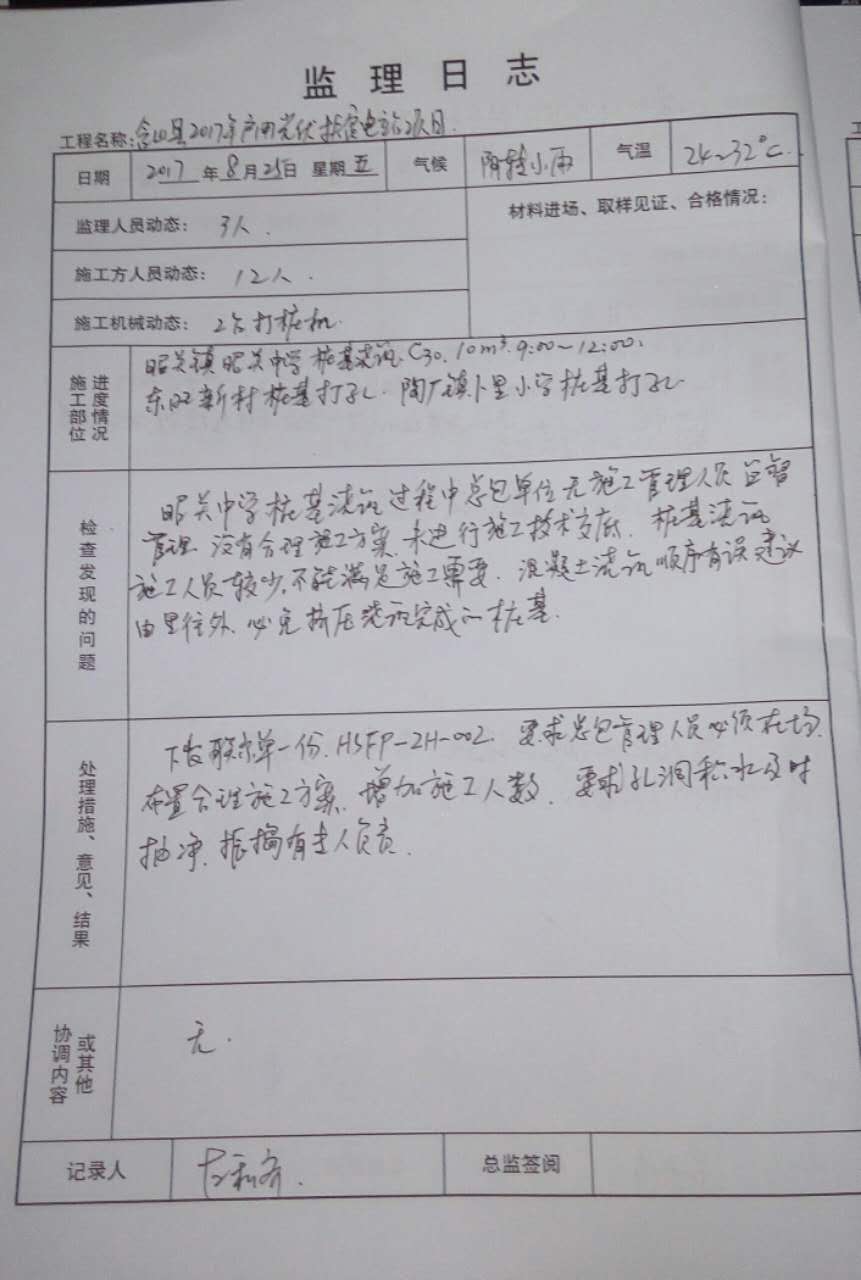 监理日志
工程名称:含山县2017年户用光伏扶贫电站项目.
日期 2017年8月25日 星期五 气候 阴转小雨 气温 24~32℃.
监理人员动态: 3人. 材料进场、取样见证、合格情况:
施工方人员动态: 12人.
施工机械动态: 2台打桩机.
施工部位 进度情况
昭关镇昭关中学桩基浇筑.C30.10m³.9:00~12:00.
东旺新村桩基打孔.陶厂镇卜里小学桩基打孔.
检查发现的问题
昭关中学桩基浇筑过程中总包单位无施工管理人员监督
管理.没有合理施工方案.未进行施工技术交底.桩基浇筑
施工人员较少,不能满足施工需要.混凝土浇筑顺序有误建议
由里往外.必免挤压浇筑完成的桩基.
处理措施、意见、结果
下发联系单一份.HSFP-ZH-002.要求总包管理人员必须在场.
布置合理施工方案.增加施工人数.要求孔洞积水及时
抽净.振捣有专人负责.
协调内容 或其他
无.
记录人 总监签阅